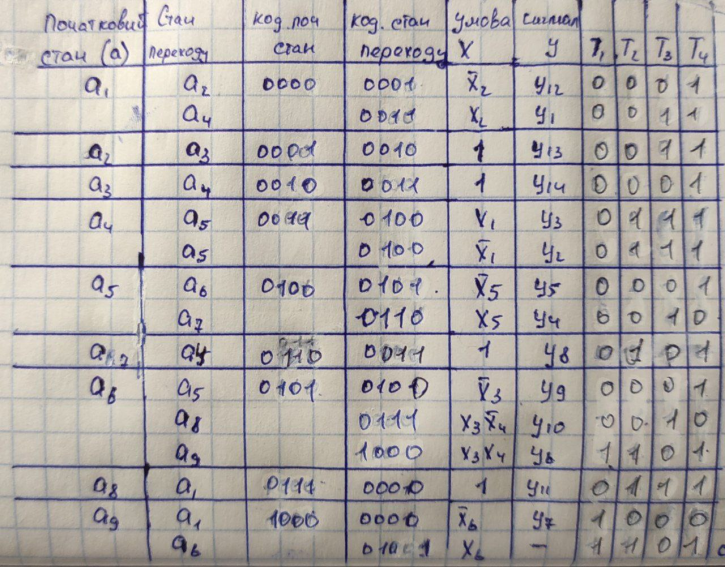 Початковий Стан код. поч код. стан Умова сигнал
стан (a) переходу стан переходу X У T₁ T₂ T₃ T₄
a₁ a₂ 0000 0001 x̄₂ y₁₂ 0 0 0 1
a₄ 0011 x₂ y₁ 0 0 1 1
a₂ a₃ 0001 0010 1 y₁₃ 0 0 1 1
a₃ a₄ 0010 0011 1 y₁₄ 0 0 0 1
a₄ a₅ 0011 0100 x₁ y₃ 0 1 1 1
a₅ 0100 x̄₁ y₂ 0 1 1 1
a₅ a₆ 0100 0101 x̄₅ y₅ 0 0 0 1
a₇ 0110 x₅ y₄ 0 0 1 0
a₇ a₄ 0110 0011 1 y₈ 0 1 0 1
a₆ a₅ 0101 0100 x̄₃ y₉ 0 0 0 1
a₈ 0111 x₃x̄₄ y₁₀ 0 0 1 0
a₉ 1000 x₃x₄ y₆ 1 1 0 1
a₈ a₁ 0111 0000 1 y₁₁ 0 1 1 1
a₉ a₁ 1000 0000 x̄₆ y₇ 1 0 0 0
a₆ x₆ — 1 1 0 1